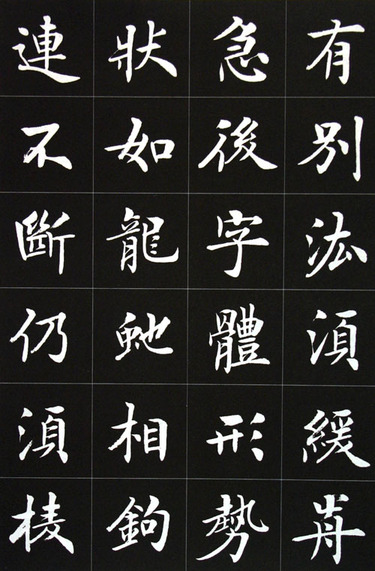 有別法須緩歬
急後字體形勢
狀如龍虵相鉤
連不斷仍須棱